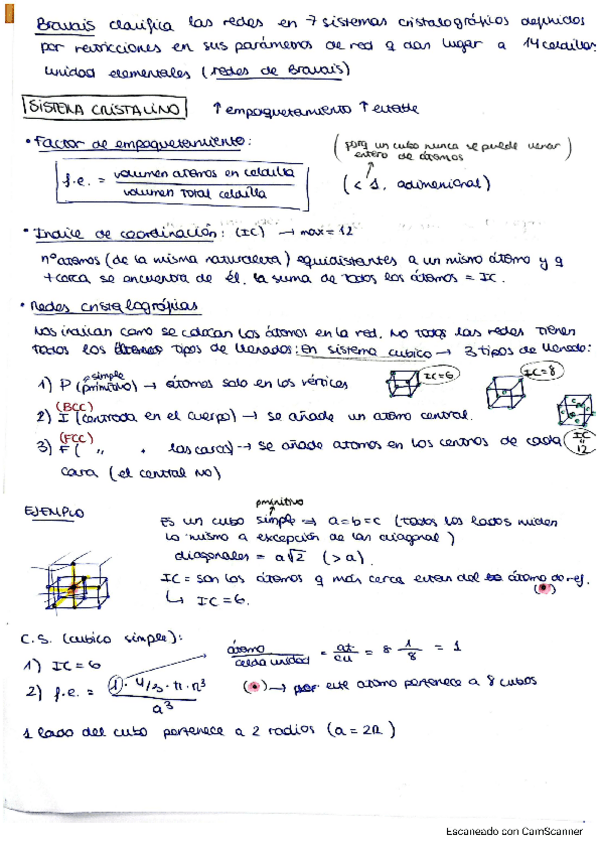 Bravais clasifica las redes en 7 sistemas cristalográficos definidos
por restricciones en sus parámetros de red q dan lugar a 14 celdillas
unidad elementales (redes de Bravais)
SISTEMA CRISTALINO ↑ empaquetamiento ↑ estable
• Factor de empaquetamiento:
(porq un cubo nunca se puede llenar
entero de átomos)
f.e. = volumen atomos en celdilla / volumen total celdilla
(< 1, adimensional)
• Indice de coordinación: (IC) → max = 12
nº atomos (de la misma naturaleza) equidistantes a un mismo átomo y q
+ cerca se encuentra de él. la suma de todos los átomos = IC.
• Redes cristalográficas
Nos indican como se colocan los átomos en la red. No todas las redes tienen
todos los tipos de llenados: en sistema cubico → 3 tipos de llenado:
1) P (primitivo) → átomos solo en los vértices
simple
IC=6
IC=8
2) I (centrada en el cuerpo) → se añade un atomo central.
(BCC)
3) F ( " " las caras) → se añade atomos en los centros de cada
(FCC)
IC = 12
cara (el central NO)
EJEMPLO
primitivo
Es un cubo simple ⇒ a=b=c (todos los lados miden
lo mismo a excepción de las diagonal)
diagonales = a√2 (>a).
IC = son los átomos q más cerca estan del átomo de ref.
↳ IC=6.
C.S. (cubico simple):
1) IC = 6
átomo / celda unidad = at / cu = 8 · 1/8 = 1
2) f.e. = 1 · 4/3 · π · r³ / a³
( ) → este atomo pertenece a 8 cubos
1 lado del cubo pertenece a 2 radios (a = 2R)
Escaneado con CamScanner